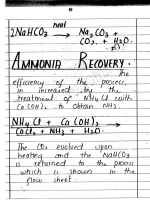 heat
2NaHCO3 → Na2CO3 +
CO2 + H2O.
AMMONIA RECOVERY.
The
efficiency of the process
is increased by the
treatment of NH4Cl with
Ca(OH)2 to obtain NH3.
NH4Cl + Ca(OH)2 →
CaCl2 + NH3 + H2O.
The CO2 evolved upon
heating and the NaHCO3
is returned to the process
which is shown in the
flow sheet.